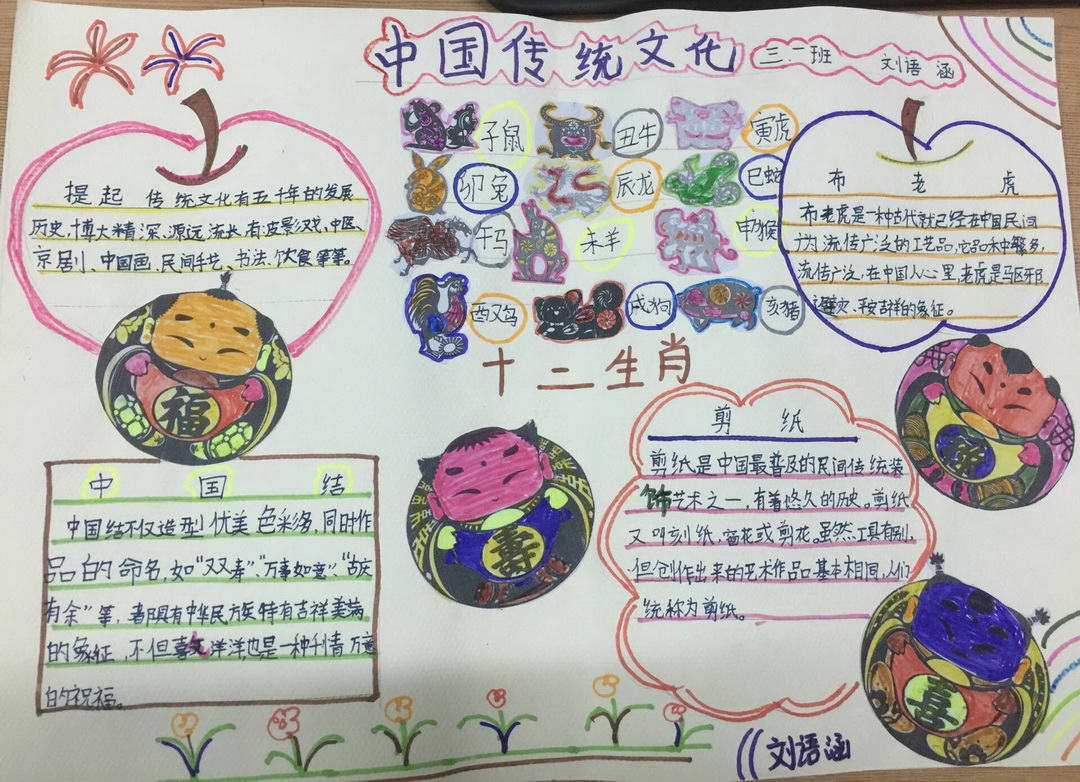 中国传统文化
三.二班 刘语涵
提起 传统文化有五千年的发展
历史,博大精深、源远流长,有:皮影戏、中医、
京剧、中国画、民间手艺、书法、饮食等等。
福
子鼠
丑牛
寅虎
卯兔
辰龙
巳蛇
午马
未羊
申猴
酉鸡
戌狗
亥猪
十二生肖
布老虎
布老虎是一种古代就已经在中国民间
广为流传广泛的工艺品,它品种繁多,
流传广泛,在中国人心里,老虎是驱邪
避灾、平安吉祥的象征。
中国结
中国结不仅造型优美色彩多,同时作
品的命名,如“双寿”、万事如意”、“吉庆
有余”等,都具有中华民族特有吉祥美满
的象征,不但喜气洋洋,也是一种刊情万意
的祝福。
寿
剪纸
剪纸是中国最普及的民间传统装
饰艺术之一,有着悠久的历史。剪纸
又叫刻纸,窗花或剪花。虽然工具有别,
但创作出来的艺术作品基本相同,人们
统称为剪纸。
喜
刘语涵